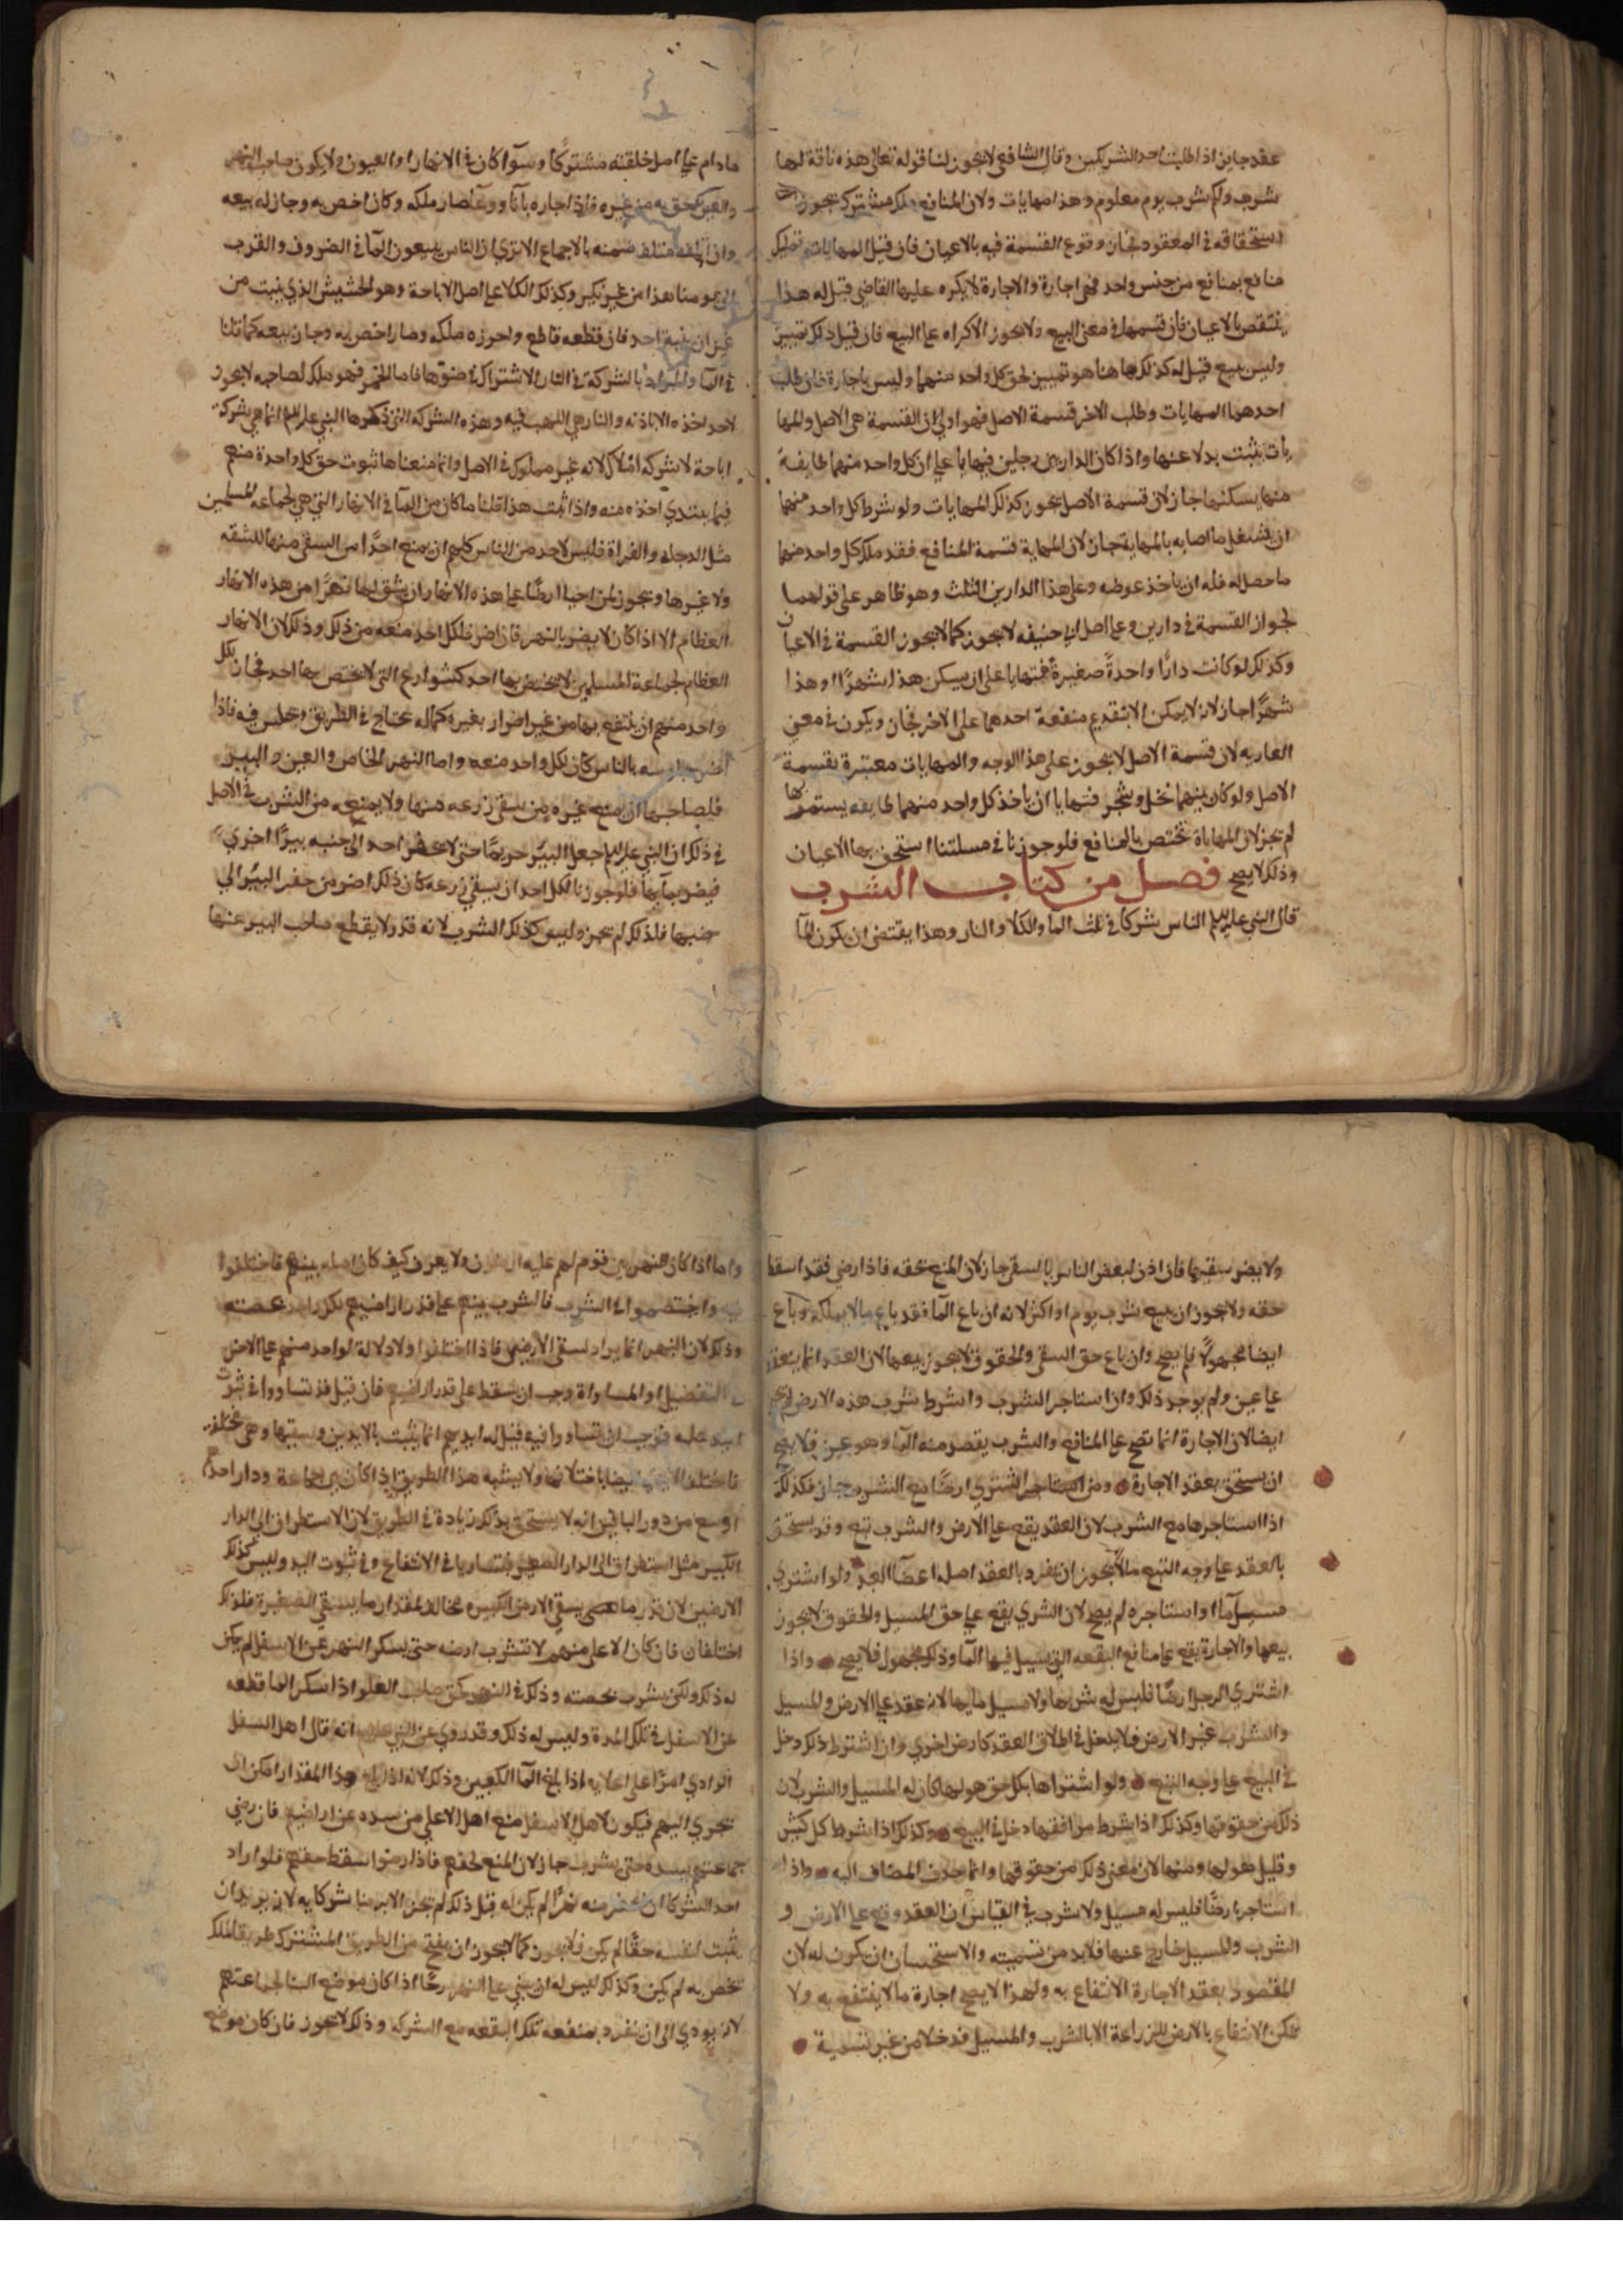 عقد جايز اذا طلبت احد الشريكين وقال الشافعي لا يجوز لنا قوله تعالى هذه ناقة لها
شرب ولكم شرب يوم معلوم وهذا مهايات ولان المنافع ملك مشترك يجوز
استحقاقه في المعقود فجاز وقوع القسمة فيه بالاعيان فان قيل المهايات تمليك
منافع بمنافع من جنس واحد فهي اجارة والاجارة لا يكره عليها القاضي قيل له هذا
ينتقض بالاعيان فان قسمها في معنى البيع ولا يجوز الاكراه على البيع فان قيل ذلك تمييز
وليس ببيع قيل له كذلك ها هنا هو تمييز لحق كل واحد منهما وليس باجارة فان طلب
احدهما المهايات وطلب الاخر قسمة الاصل فهو اولى لان القسمة هي الاصل والمها
يات يثبت بدلا عنها واذا كان الدار بين رجلين فتهايا على ان كل واحد منهما طايفة
منها يسكنها جاز لان قسمة الاصل يجوز كذلك المهايات ولو شرط كل واحد منهما
ان يشتغل ما اصابه بالمهاياة جاز لان المهاياة قسمة المنافع فقد ملك كل واحد منهما
ما حصل له فله ان ياخذ عوضه وعلى هذا الدارين الثلث وهو ظاهر على قولهما
لجواز القسمة في دارين وعلى اصل ابي حنيفه لا يجوز كما لا يجوز القسمة في الاعيان
وكذلك لو كانت دارًا واحدةً صغيرةً فتهايا على ان يسكن هذا شهرًا وهذا
شهرًا جاز لانه لا يمكن الا بتقديم منفعة احدهما على الاخر فجاز ويكون في معنى
العاريه لان قسمة الاصل لا يجوز على هذا الوجه والمهايات معتبرة بقسمة
الاصل ولو كان بينهما نخل وشجر فتهايا ان ياخذ كل واحد منهما طايفه يستثمرها
لم يجز لان المهاياة تختص بالمنافع فلو جوزنا في مسلتنا استحق بها الاعيان
وذلك لا يصح فصل من كتاب الشرب
قال النبي عليه السلم الناس شركا في ثلث الما والكلا والنار وهذا يقتضى ان يكون الما
ما دام على اصل خلقته مشتركًا وسوآ كان في الانهار او العيون ولا يكون صاحب النهر
والعين احق به من غيره فاذا جازه بانآ ووعآ صار ملكه وكان اخص به وجاز له بيعه
وان اتلفه متلف ضمنه بالاجماع الا ترى ان الناس يبيعون المآ في الضروف والقرب
الى يومنا هذا من غير نكير وكذلك الكلا على اصل الاباحة وهو الحشيش الذي ينبت من
غير ان ينبته احد فان قطعه قاطع واحوزه ملكه وصار اخص به وجاز بيعه كما قلنا
في المآ والمراد بالشركة في النار الاشتراك في ضوّها فاما الجمر فهو ملك لصاحبه لا يجوز
لاحد اخذه الا باذنه والنار هي اللهب فيه وهذه الشركة التي ذكرها النبي عليه السلم انما هي شركة
اباحة لا شركة املاك لانه غير مملوك في الاصل وانما معناها ثبوت حق كل واحدة منهم
فيما يبتدي اخذه منه واذا ثبت هذا قلنا ما كان من المآ في الانهار التي هي لجماعه المسلمين
مثل الدجله والفراة فليس لاحد من الناس كلهم ان يمنع احدًا من السقى منها للشفه
ولا غيرها ويجوز لمن احيا ارضًا على هذه الانهار ان يشق لها نهرًا من هذه الانهار
العظام الا اذا كان لا يضر بالنهر فان اضر فلكل احد منعه من ذلك وذلك لان الانهار
العظام لجماعة المسلمين لا يختص بها احد كشوارع التي لا يختص بها احد فجاز لكل
واحد منهم ان ينتفع بها من غير اضرار بغيره كما له يجتاح في الطريق ويجلس فيه فاذا
اضر جلوسه بالناس كان لكل واحد منعه واما النهر الخاص والعين والبير
فلصاحبها ان يمنع غيره من يسقى زرعه منها ولا يمنعه من الشرب في الاصل
في ذلك ان النبي عليه السلم جعل للبير حريمًا حتى لا يحفر احد الى جنبه بيرًا اخرى
فيضر بمآيها فلو جوزنا لكل احد ان يسقي زرعه كان ذلك اضر من حفر البير الى
جنبها فلذلك لم يجز وليس كذلك الشرب لانه قدر لا يقطع صاحب البير عنها
ولا يضر سقيها فان اذن لبعض الناس بالسقى جاز لان المنع لحقه فاذا رضي فقد اسقط
حقه ولا يجوز ان يبيع شرب يوم او اكثر لانه ان باع المآ فقد باع ما لا يملكه وباع
ايضا مجهولًا فلم يصح وان باع حق السقى والحقوق لا يجوز بيعها لان العقد انما ينعقد
على عين ولم يوجد ذلك وان استاجر الشرب واشترط شرب هذه الارض لم يجز
ايضا لان الاجارة انما تصح على المنافع والشرب يقصد منه المآ وهو عين فلا يصح
ان يستحق بعقد الاجارة ومن اشتري ارضًا مع الشرب جاز فكذلك
اذا استاجرها مع الشرب لان العقد يقع على الارض والشرب تبع وقد يستحق
بالعقد على وجه التبع ما لا يجوز ان يفرد بالعقد اصله اعضآ العبد ولو اشترى
مسيل مآ او استاجره لم يصح لان الشري يقع على حق المسيل والحقوق لا يجوز
بيعها والاجارة يقع على منافع البقعه التي يسيل فيها المآ وذلك مجهول فلا يصح واذا
اشترى الرجل ارضًا فليس له شربها ولا مسيل مايها لانه عقد على الارض والمسيل
والشرب غير الارض فلا يدخل في اطلاق العقد كارض اخرى وان اشترط ذلك دخل
في البيع على وجه التبع ولو اشتراها بكل حق هو لها كان له المسيل والشرب لان
ذلك من حقوقها وكذلك اذا شرط مرافقها دخل في البيع وكذلك اذا شرط كل كثير
وقليل هو لها ومنها لان معنى ذلك من حقوقها وانما حذف المضاف اليه واذا
استاجر ارضًا فليس له مسيل ولا شرب في القياس لان العقد وقع على الارض و
الشرب والمسيل خارج عنها فلا بد من تسميته والاستحسان ان يكون له لان
المقصود بعقد الاجارة الانتفاع به ولهذا لا يصح اجارة ما لا ينتفع به ولا
يمكن الانتفاع بالارض للزراعة الا بالشرب والمسيل فدخلا من غير تسمية
واما اذا كان نهر بين قوم لهم عليه ولا يعرف كيف كان اصله بينهم فاختلفوا
فيه واختصموا في الشرب فالشرب بينهم على قدر اراضيهم حصته
وذلك لان النهر انما يراد لسقى الارضين فاذا اختلفوا ولا دلالة لواحد منهم على الاخر
التفضيل او المساواة وجب ان يسقط على قدر اراضيهم فان قيل قد تساووا في ثبوت
اليد عليه فوجب ان تساووا فيه قيل له ايديهم انما يثبت بالايدين وسببها وهي مختلفه
فاختلف باختلافها ولا يشبه هذا الطريق اذا كان بين جماعة ودار احدهم
اوسع من دور الباقين انه لا يستحق بذلك زيادة في الطريق لان الاستطراق الى الدار
الكبير مثل استطراق الى الدار الصغير فتساويا في الانتفاع وفي ثبوت اليد وليس كذلك
الارضين لان قدر ما يسقي الارض الكبيره مخالف لمقدار ما يسقي الصغيرة فلذلك
اختلفان فان كان الاعلى منهم لا تشرب ارضه حتى يسكر النهر عن الاسفل لم يكن
له ذلك ولكن يشرب بحصته وذلك في النهر كحق صاحب العلو اذا سكر الما قطعه
عن الاسفل في تلك المدة وليس له ذلك وقد روي عن النبي عليه السلم انه قال اهل السفل
الوادي امرًا على اعلايه اذا بلغ المآ الكعبين وذلك لانه اذا بلغ هذا المقدار امكن ان
يجري اليهم فيكون لاهل الاسفل منع اهل الاعلى من سده عن اراضيهم فان رضي
جماعتهم بسده حتى يشرب جاز لان المنع لحقهم فاذا رضوا سقط حقهم فلو اراد
احد الشركا ان يحفر منه نهرًا لم يكن له قبل ذلك لم يجز الا برضا شركايه لانه يريد ان
يثبت لنفسه حقًا لم يكن فلا يجوز كما لا يجوز ان يفتح من الطريق المشترك طريقا لملك
تخص به لم يكن وكذلك ليس له ان يبني على النهر رحًا اذا كان موضع البنا لجماعتهم
لانه يودي الى ان ينفرد بمنفعه تلك البقعه مع الشركه وذلك لا يجوز فان كان موضع